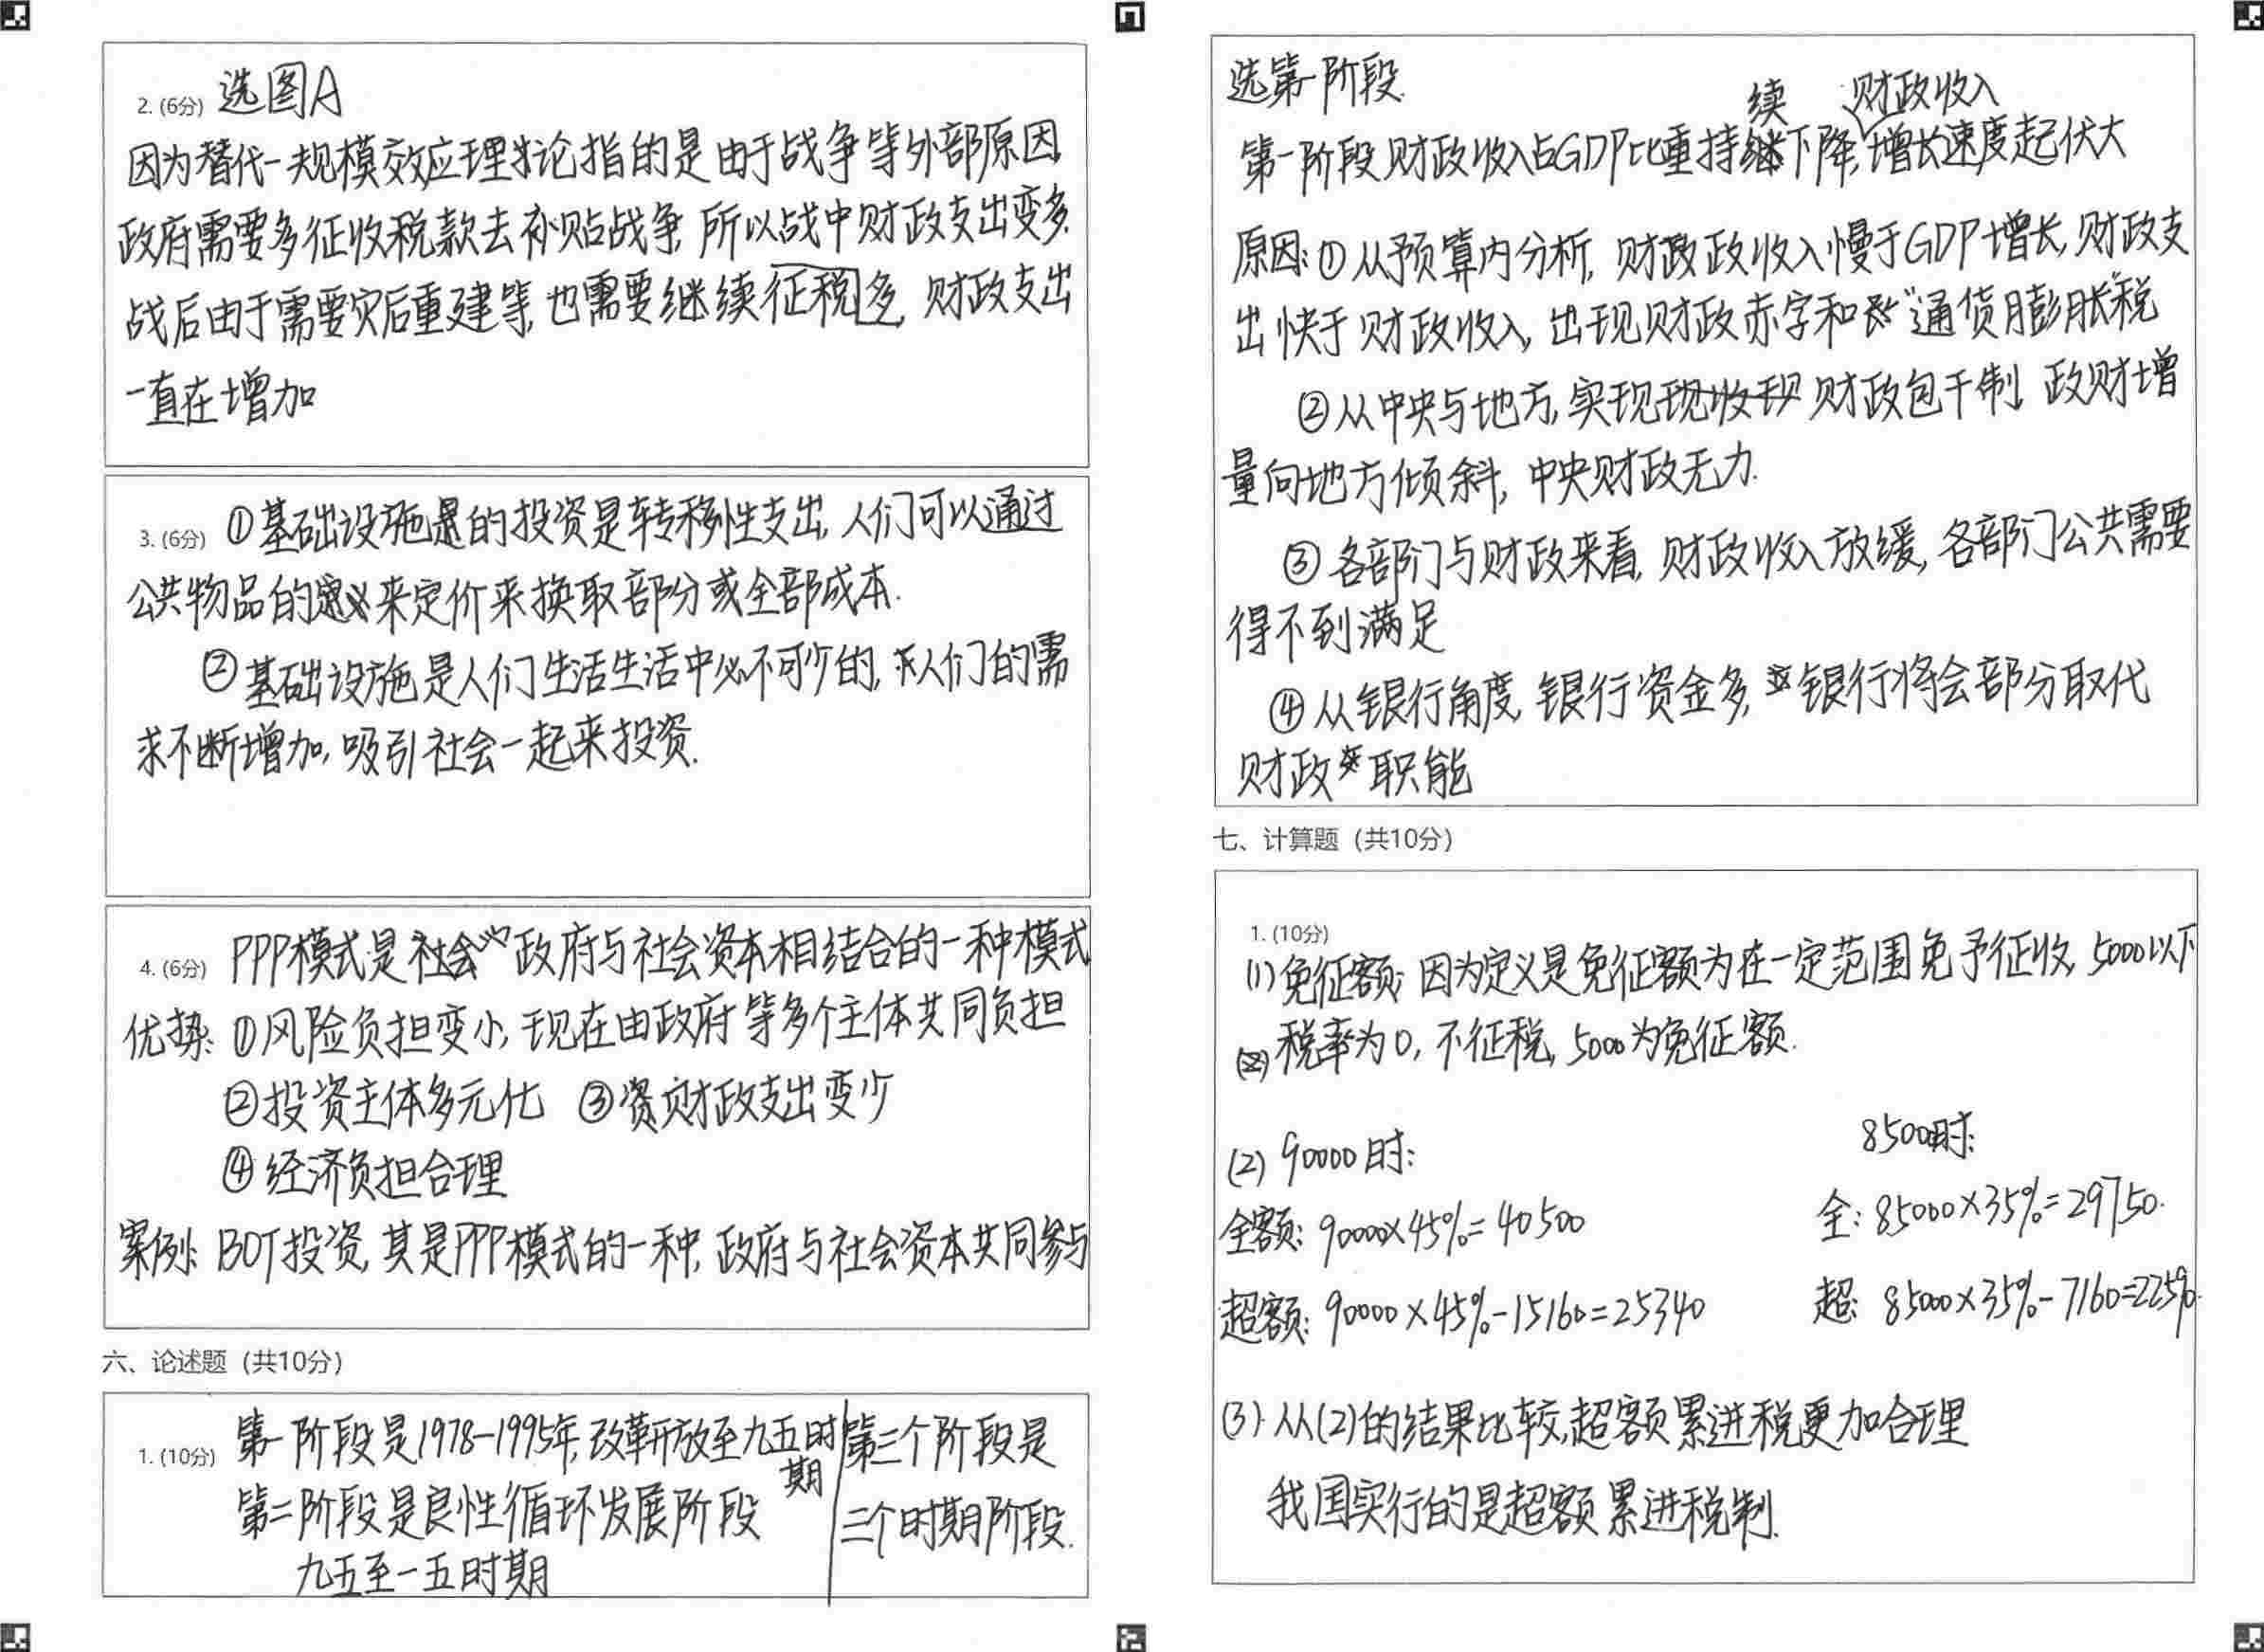 2. (6分) 选图A
因为替代一规模效应理论指的是由于战争等外部原因
政府需要多征收税款去补贴战争,所以战中财政支出变多.
战后由于需要灾后重建等,也需要继续征税多,财政支出
一直在增加
3. (6分) ①基础设施的投资是转移性支出,人们可以通过
公共物品的定义来定价来换取部分或全部成本.
②基础设施是人们生活生活中必不可少的,人们的需
求不断增加,吸引社会一起来投资.
4. (6分) PPP模式是政府与社会资本相结合的一种模式
优势:①风险负担变小,现在由政府等多个主体共同负担
②投资主体多元化 ③财政支出变少
④经济负担合理
案例:BOT投资,其是PPP模式的一种,政府与社会资本共同参与
六、论述题(共10分)
1. (10分) 第一阶段是1978-1995年,改革开放至九五时
期
第二阶段是良性循环发展阶段
九五至一五时期
第三个阶段是
三个时期阶段.
选第一阶段.
续 财政收入
第一阶段财政收入占GDP比重持下降,增长速度起伏大
原因:①从预算内分析,财政政收入慢于GDP增长,财政支
出快于财政收入,出现财政赤字和“通货膨胀”税
②从中央与地方,实现财政包干制,政财增
量向地方倾斜,中央财政无力.
③各部门与财政来看,财政收入放缓,各部门公共需要
得不到满足
④从银行角度,银行资金多,银行将会部分取代
财政职能
七、计算题(共10分)
1. (10分)
(1)免征额:因为定义是免征额为在一定范围免予征收,5000以下
税率为0,不征税,5000为免征额.
(2) 90000时:
全额:90000×45%=40500
超额:90000×45%-15160=25340
85000时:
全:85000×35%=29750.
超:85000×35%-7160=22590.
(3).从(2)的结果比较,超额累进税更加合理
我国实行的是超额累进税制.